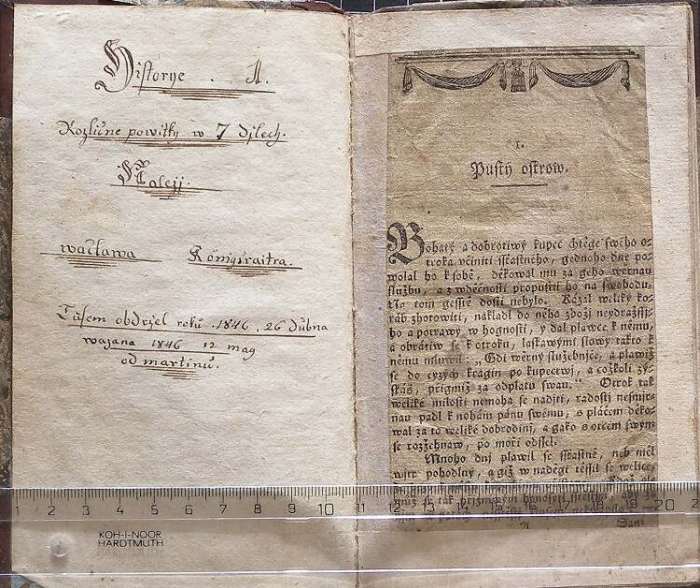 Historye . A.
Rozličné powitky w 7 djlech.
Naleží
wacława Königsraitra.
Tusem obdrjel roků . 1846 . 26 dubna
wazana 1846 12 may
od martinů.
1.
Pustý ostrow.
Bohatý a dobrotiwý kupec chtěge swého o-
troka včiniti ssťastného, gednoho dne po-
wolal ho k sobě, děkowal mu za geho wěrnau
službu, a z wděčnosti propustil ho na swobodu.
Na tom gesstě dosti nebylo. Kázal weliký ko-
ráb zhotowiti, nakladl do něho zboží neydražssj-
ho a potrawy, w hognosti, y dal plawce k němu,
a obrátiw se k otroku, laskawými slowy takto k
němu mluwil: „Gdi wěrný služebnjče, a plawiž
se do cyzých kragin po kupectwj, a cožkoli zý-
skáš, přigmiž za odplatu swau.“ Otrok tak
weliké milosti nemoha se nadjti, radostj nesmjr-
nau padl k nohám pánu swému, s pláčem děko-
wal za to weliké dobrodinj, a gako s otcem swým
se rozžehnaw, po moři odssel.
Mnoho dnj plawil se ssťastně, neb měl
wjtr pohodlný, a giž w naděgi těssil se welice,
1 2 3 4 5 6 7 8 9 10 11 12 13 14 15 16 17 18 19 20
KOH-I-NOOR
HARDTMUTH